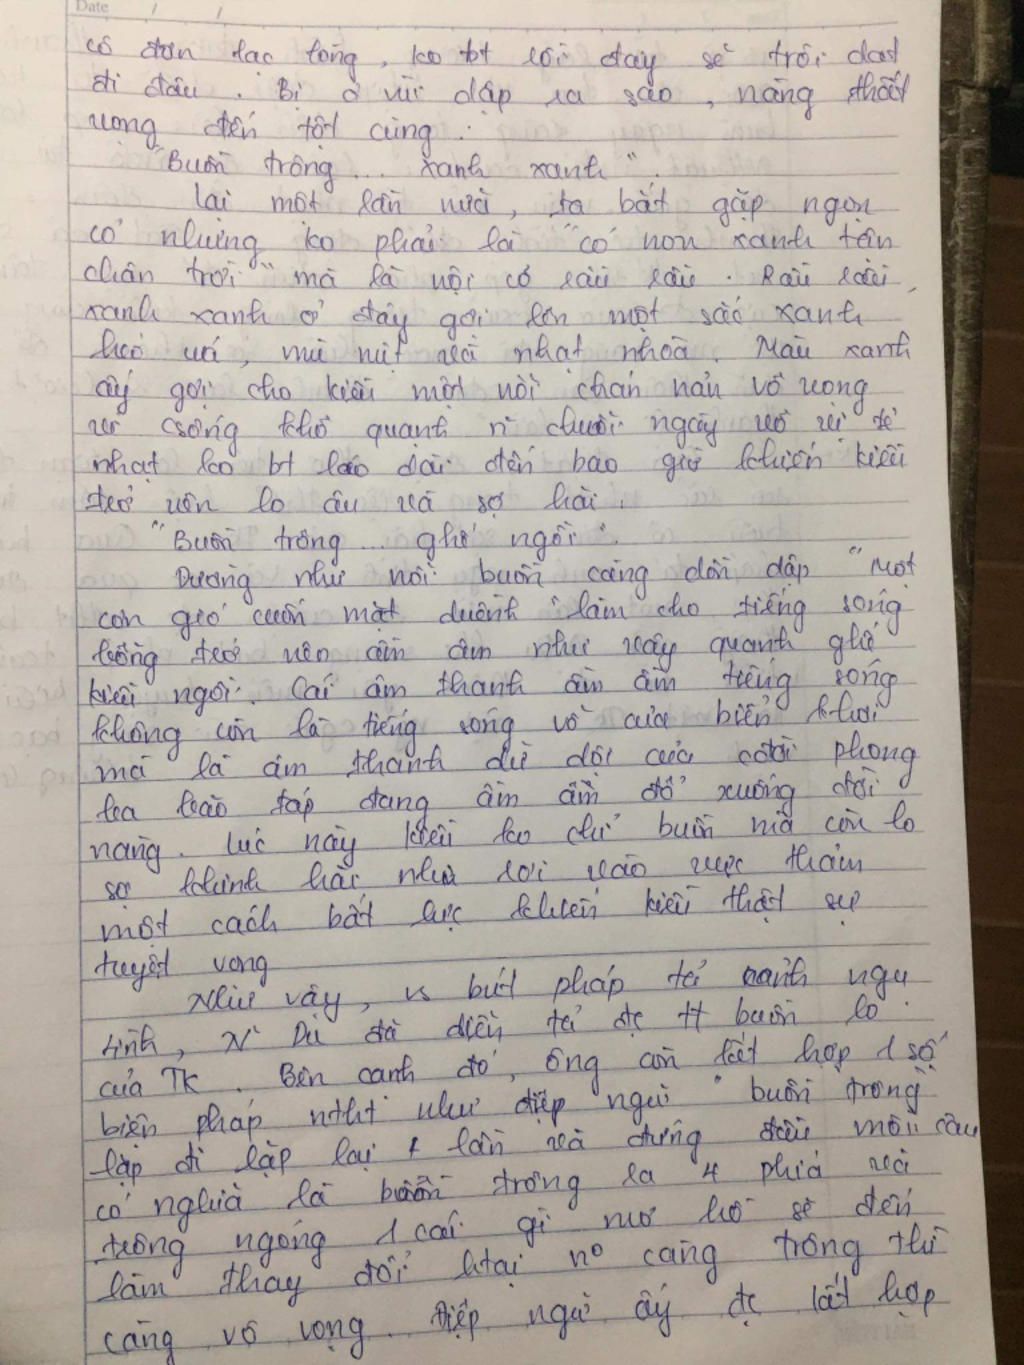 Date / /
cô đơn lạc lõng, ko bt rồi đây sẽ trôi dạt
đi đâu. Bị ở vùi dập ra sao, nàng thất
vọng đến tột cùng.
"Buồn trông... xanh xanh".
Lại một lần nữa, ta bắt gặp ngọn
cỏ nhưng ko phải là "cỏ non xanh tận
chân trời" mà là nội cỏ rầu rầu. Rầu rầu,
xanh xanh ở đây gợi lên một sắc xanh
héo úa, mù mịt và nhạt nhoà. Màu xanh
ấy gợi cho kiều một nỗi chán nản vô vọng
vì csống khô quạnh n~ chuỗi ngày vô vị tẻ
nhạt ko bt kéo dài đến bao giờ khiến kiều
trở nên lo âu và sợ hãi.
"Buồn trông... ghế ngồi".
Dường như nỗi buồn càng dồn dập "Một
cơn gió cuốn mặt duềnh" làm cho tiếng sóng
bỗng trở nên ầm ầm như vây quanh ghế
kiều ngồi. Cái âm thanh ầm ầm tiếng sóng
không còn là tiếng sóng vỗ của biển khơi
mà là âm thanh dữ dội của cđời phong
ba bão táp đang ầm ầm đổ xuống đời
nàng. Lúc này kiều ko chỉ buồn mà còn lo
sợ khinh hãi như rơi vào vực thẳm
một cách bất lực khiến kiều thật sự
tuyệt vọng
Như vậy, vs bút pháp tả cảnh ngụ
tình, N~ Du đã diễn tả đc tt buồn lo
của TK. Bên cạnh đó, ông còn kết hợp 1 số
biện pháp ntht như điệp ngữ "buồn trông"
lặp đi lặp lại 4 lần và đứng đầu mỗi câu
có nghĩa là buồn trông ra 4 phía và
trông ngóng 1 cái gì mơ hồ sẽ đến
làm thay đổi htại nº càng trông thì
càng vô vọng. Điệp ngữ ấy đc kết hợp